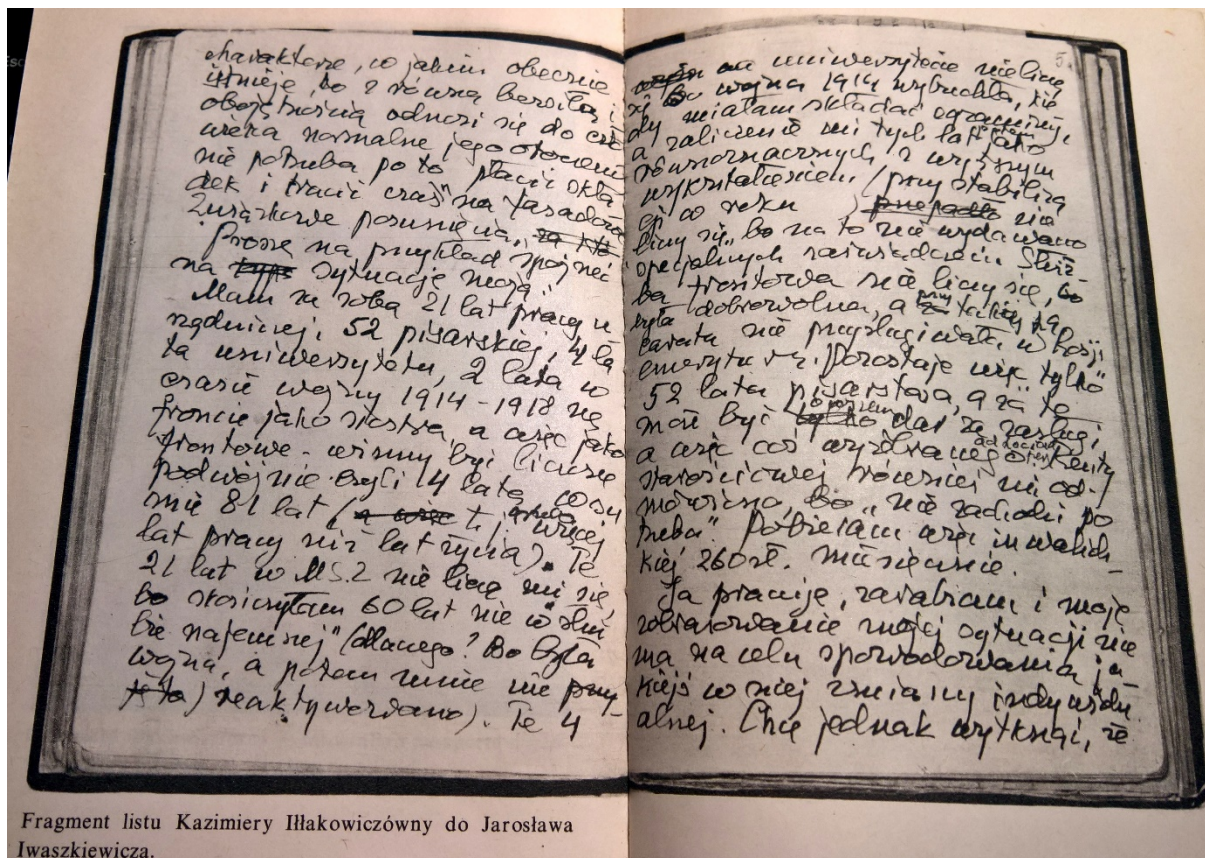 charakterze, w jakim obecnie
istnieje, bo z równą bezsiłą i
obojętnością odnosi się do czło
wieka normalne jego otoczenie
nie potrzeba po to płacić skła
dek i tracić czas" na fasadowe
Związkowe posunięcia,
Proszę na przykład spojrzeć
na sytuację moją.
Mam za sobą 21 lat pracy u
rzędniczej, 52 pisarskiej, 4 la
ta uniwersytetu, 2 lata w
czasie wojny 1914-1918 na
froncie jako siostra, a więc jako
frontowe - winny być liczone
podwójnie czyli 4 lata, co su
mie 81 lat (a więc t.j. więcej
lat pracy niż lat życia). Te
21 lat w M.S.Z nie liczą mi się,
bo skończyłam 60 lat nie w służ
bie najemnej" (dlaczego? Bo była
wojna, a potem mnie nie przy-
reaktywowano). Te 4
5.
na uniwersytecie nie liczą
się bo wojna 1914 wybuchła, kie
dy miałam składać egzaminy,
a zaliczenie mi tych lat jako
równoznacznych z wyższym
wykształceniem (przy stabiliza
cji w roku ) przepadło nie
liczy się, bo na to nie wydawano
specjalnych zaświadczeń. Służ-
ba frontowa nie liczy się, bo
była dobrowolna, a przy takiej za
carata nie przysługiwała w Rosji
emerytura. Pozostaje więc "tylko"
52 lata pisarstwa, a za to
może być dar za zasługi
a więc coś wyżebranego. Renty
starościowej również mi od-
mówiono, bo "nie zachodzi po
trzeba". Pobieram więc inwalidz-
kiej 260 zł. miesięcznie.
Ja pracuję, zarabiam i moje
zobrazowanie mojej sytuacji nie
ma na celu spowodowania ja-
kiejś w niej zmiany indywidu
alnej. Chcę jednak wytknąć, że
Fragment listu Kazimiery Iłłakowiczówny do Jarosława
Iwaszkiewicza.